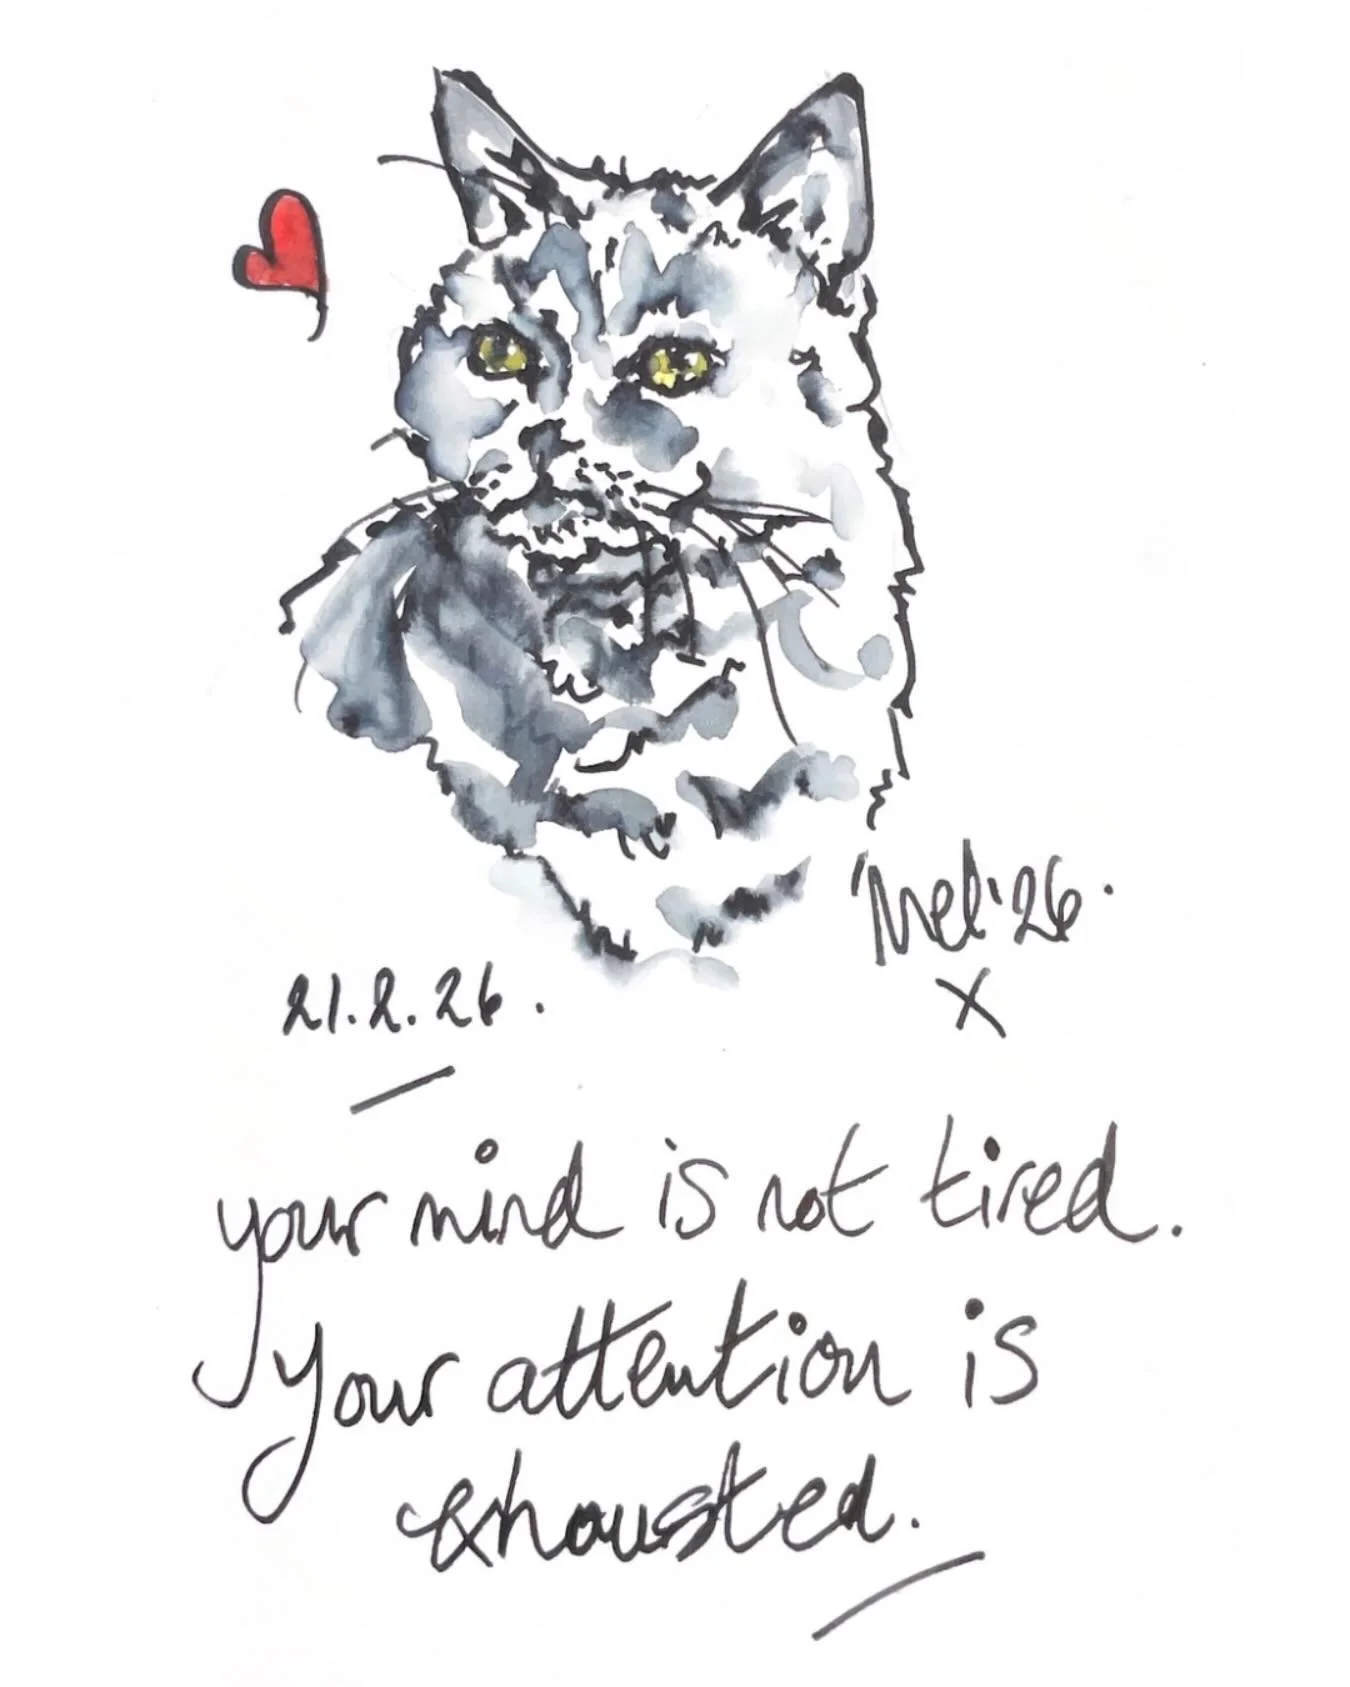 'Mel '26.
x
21.2.26.
your mind is not tired.
Your attention is
exhousted.